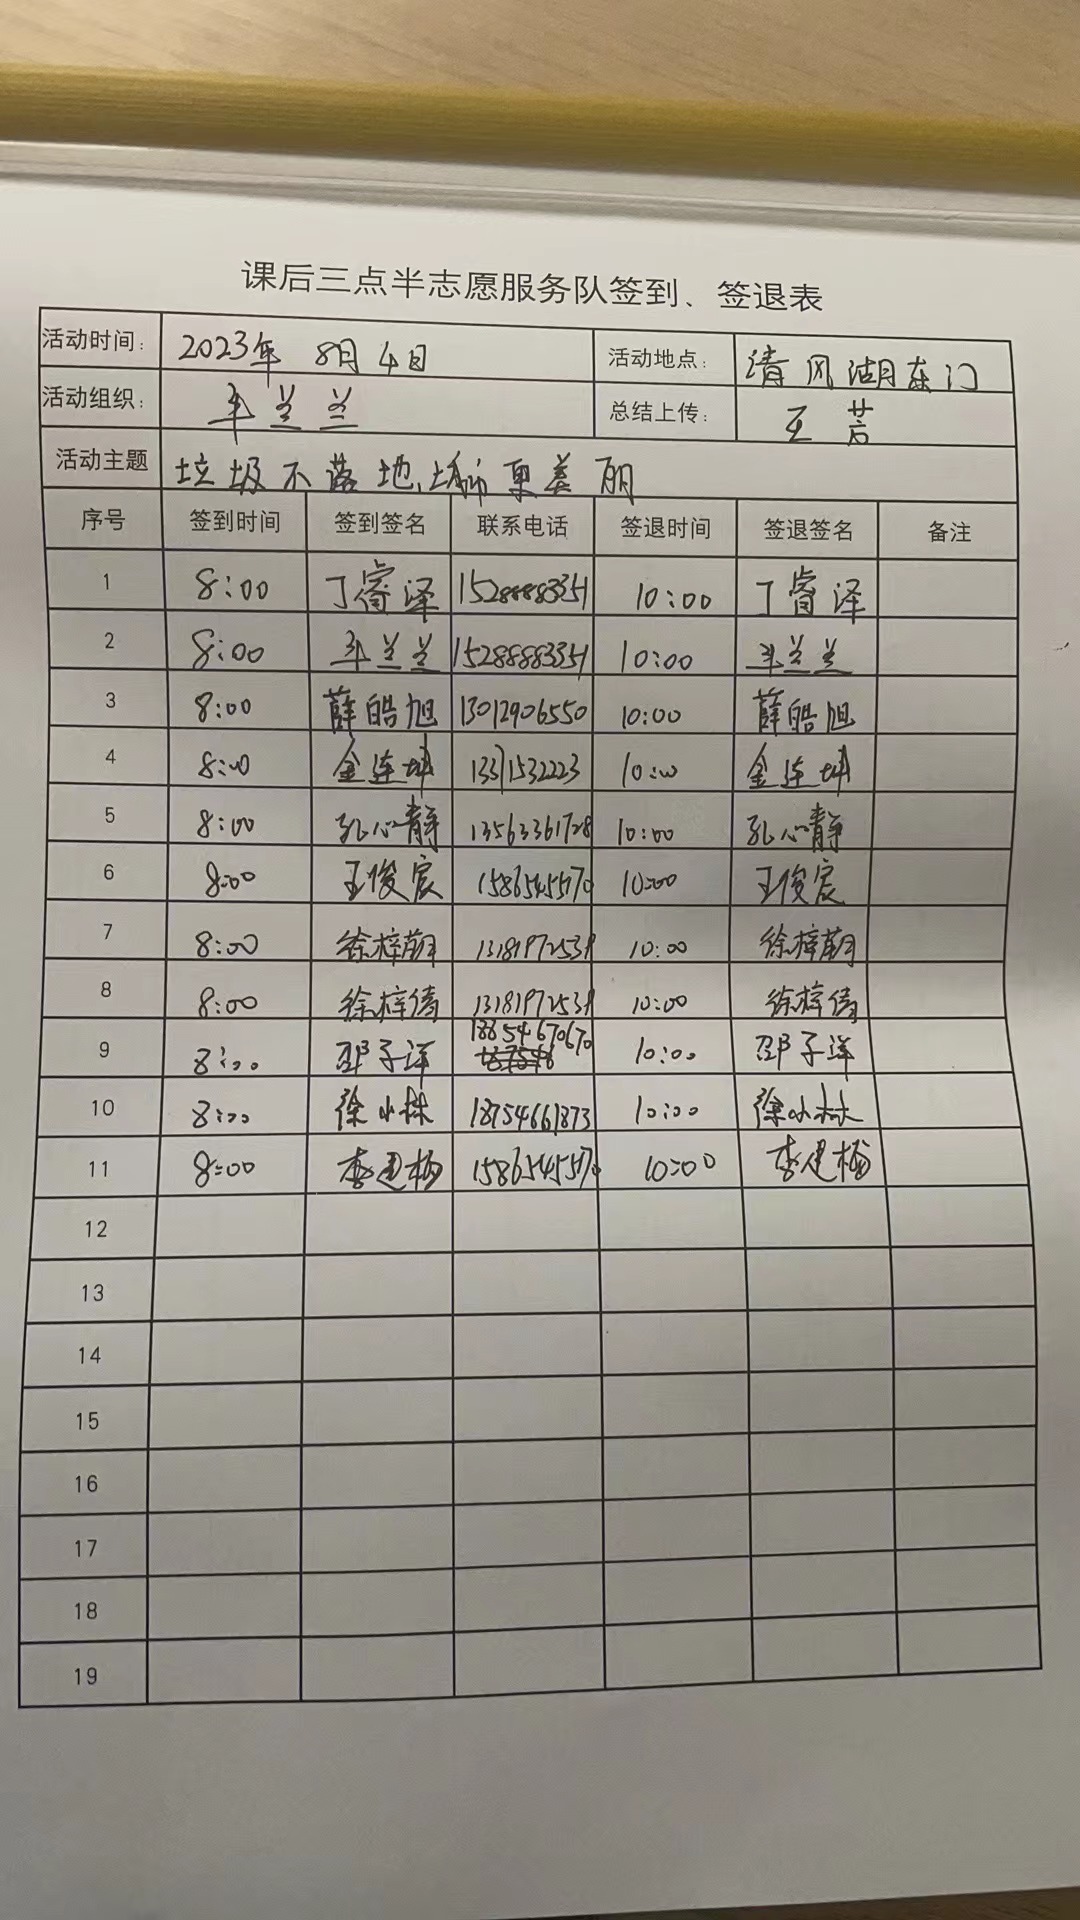 课后三点半志愿服务队签到、签退表
活动时间： 2023年 8月 4日 活动地点： 清风湖东门
活动组织： 车兰兰 总结上传： 王
活动主题 垃圾不落地，城市更美丽
序号 签到时间 签到签名 联系电话 签退时间 签退签名 备注
1 8:00 丁睿泽 15288883351 10:00 丁睿泽
2 8:00 车兰兰 15288883351 10:00 车兰兰
3 8:00 薛皓旭 13012906550 10:00 薛皓旭
4 8:00 金连坤 13371532223 10:00 金连坤
5 8:00 孔心静 13563361728 10:00 孔心静
6 8:00 王俊宸 15865455170 10:00 王俊宸
7 8:00 徐梓萌 13181972539 10:00 徐梓萌
8 8:00 徐梓倩 13181972539 10:00 徐梓倩
9 8:00 邵子洋 18654670670 10:00 邵子洋
10 8:00 徐小林 18754661873 10:00 徐小林
11 8:00 李建梅 15865455170 10:00 李建梅
12
13
14
15
16
17
18
19